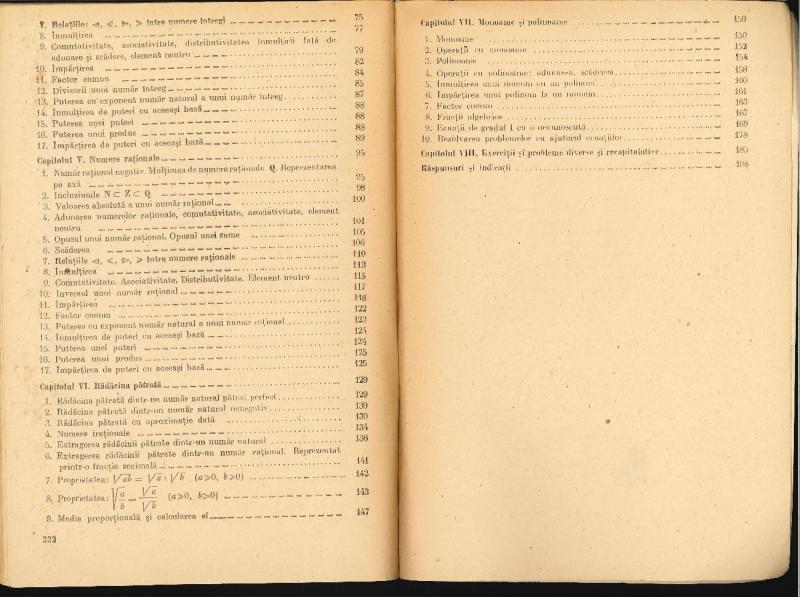 7. Relațiile: <, ⩽, >, ⩾ între numere întregi 75
8. Înmulțirea 77
9. Comutativitate, asociativitate, distributivitatea înmulțirii față de
adunare și scădere, element neutru 79
10. Împărțirea 82
11. Factor comun 84
12. Divizorii unui număr întreg 85
13. Puterea cu exponent număr natural a unui număr întreg 87
14. Înmulțirea de puteri cu aceeași bază 88
15. Puterea unei puteri 88
16. Puterea unui produs 88
17. Împărțirea de puteri cu aceeași bază 89
Capitolul V. Numere raționale 95
1. Număr rațional negativ. Mulțimea de numere raționale Q. Reprezentarea
pe axă 95
2. Incluziunile N ⊂ Z ⊂ Q 98
3. Valoarea absolută a unui număr rațional 100
4. Adunarea numerelor raționale, comutativitate, asociativitate, element
neutru 101
5. Opusul unui număr rațional. Opusul unei sume 105
6. Scăderea 106
7. Relațiile <, ⩽, >, ⩾ între numere raționale 110
8. Înmulțirea 113
9. Comutativitate. Asociativitate. Distributivitate. Element neutru 115
10. Inversul unui număr rațional 117
11. Împărțirea 118
12. Factor comun 122
13. Puterea cu exponent număr natural a unui număr rațional 123
14. Înmulțirea de puteri cu aceeași bază 124
15. Puterea unei puteri 124
16. Puterea unui produs 125
17. Împărțirea de puteri cu aceeași bază 125
Capitolul VI. Rădăcina pătrată 129
1. Rădăcina pătrată dintr-un număr natural pătrat perfect 129
2. Rădăcina pătrată dintr-un număr natural nenegativ 130
3. Rădăcina pătrată cu aproximație dată 130
4. Numere iraționale 134
5. Extragerea rădăcinii pătrate dintr-un număr natural 136
6. Extragerea rădăcinii pătrate dintr-un număr rațional. Reprezentat
printr-o fracție zecimală 141
7. Proprietatea: √ab = √a : √b (a⩾0, b⩾0) 142
8. Proprietatea: √(a/b) = √a/√b (a⩾0, b>0) 143
9. Media proporțională și calcularea ei 147
222
Capitolul VII. Monoame și polinoame 150
1. Monoame 150
2. Operații cu monoame 152
3. Polinoame 154
4. Operații cu polinoame: adunarea, scăderea 158
5. Înmulțirea unui monom cu un polinom 160
6. Împărțirea unui polinom la un monom 161
7. Factor comun 163
8. Fracții algebrice 167
9. Ecuații de gradul I cu o necunoscută 169
10. Rezolvarea problemelor cu ajutorul ecuațiilor 178
Capitolul VIII. Exerciții și probleme diverse și recapitulative 185
Răspunsuri și indicații 198